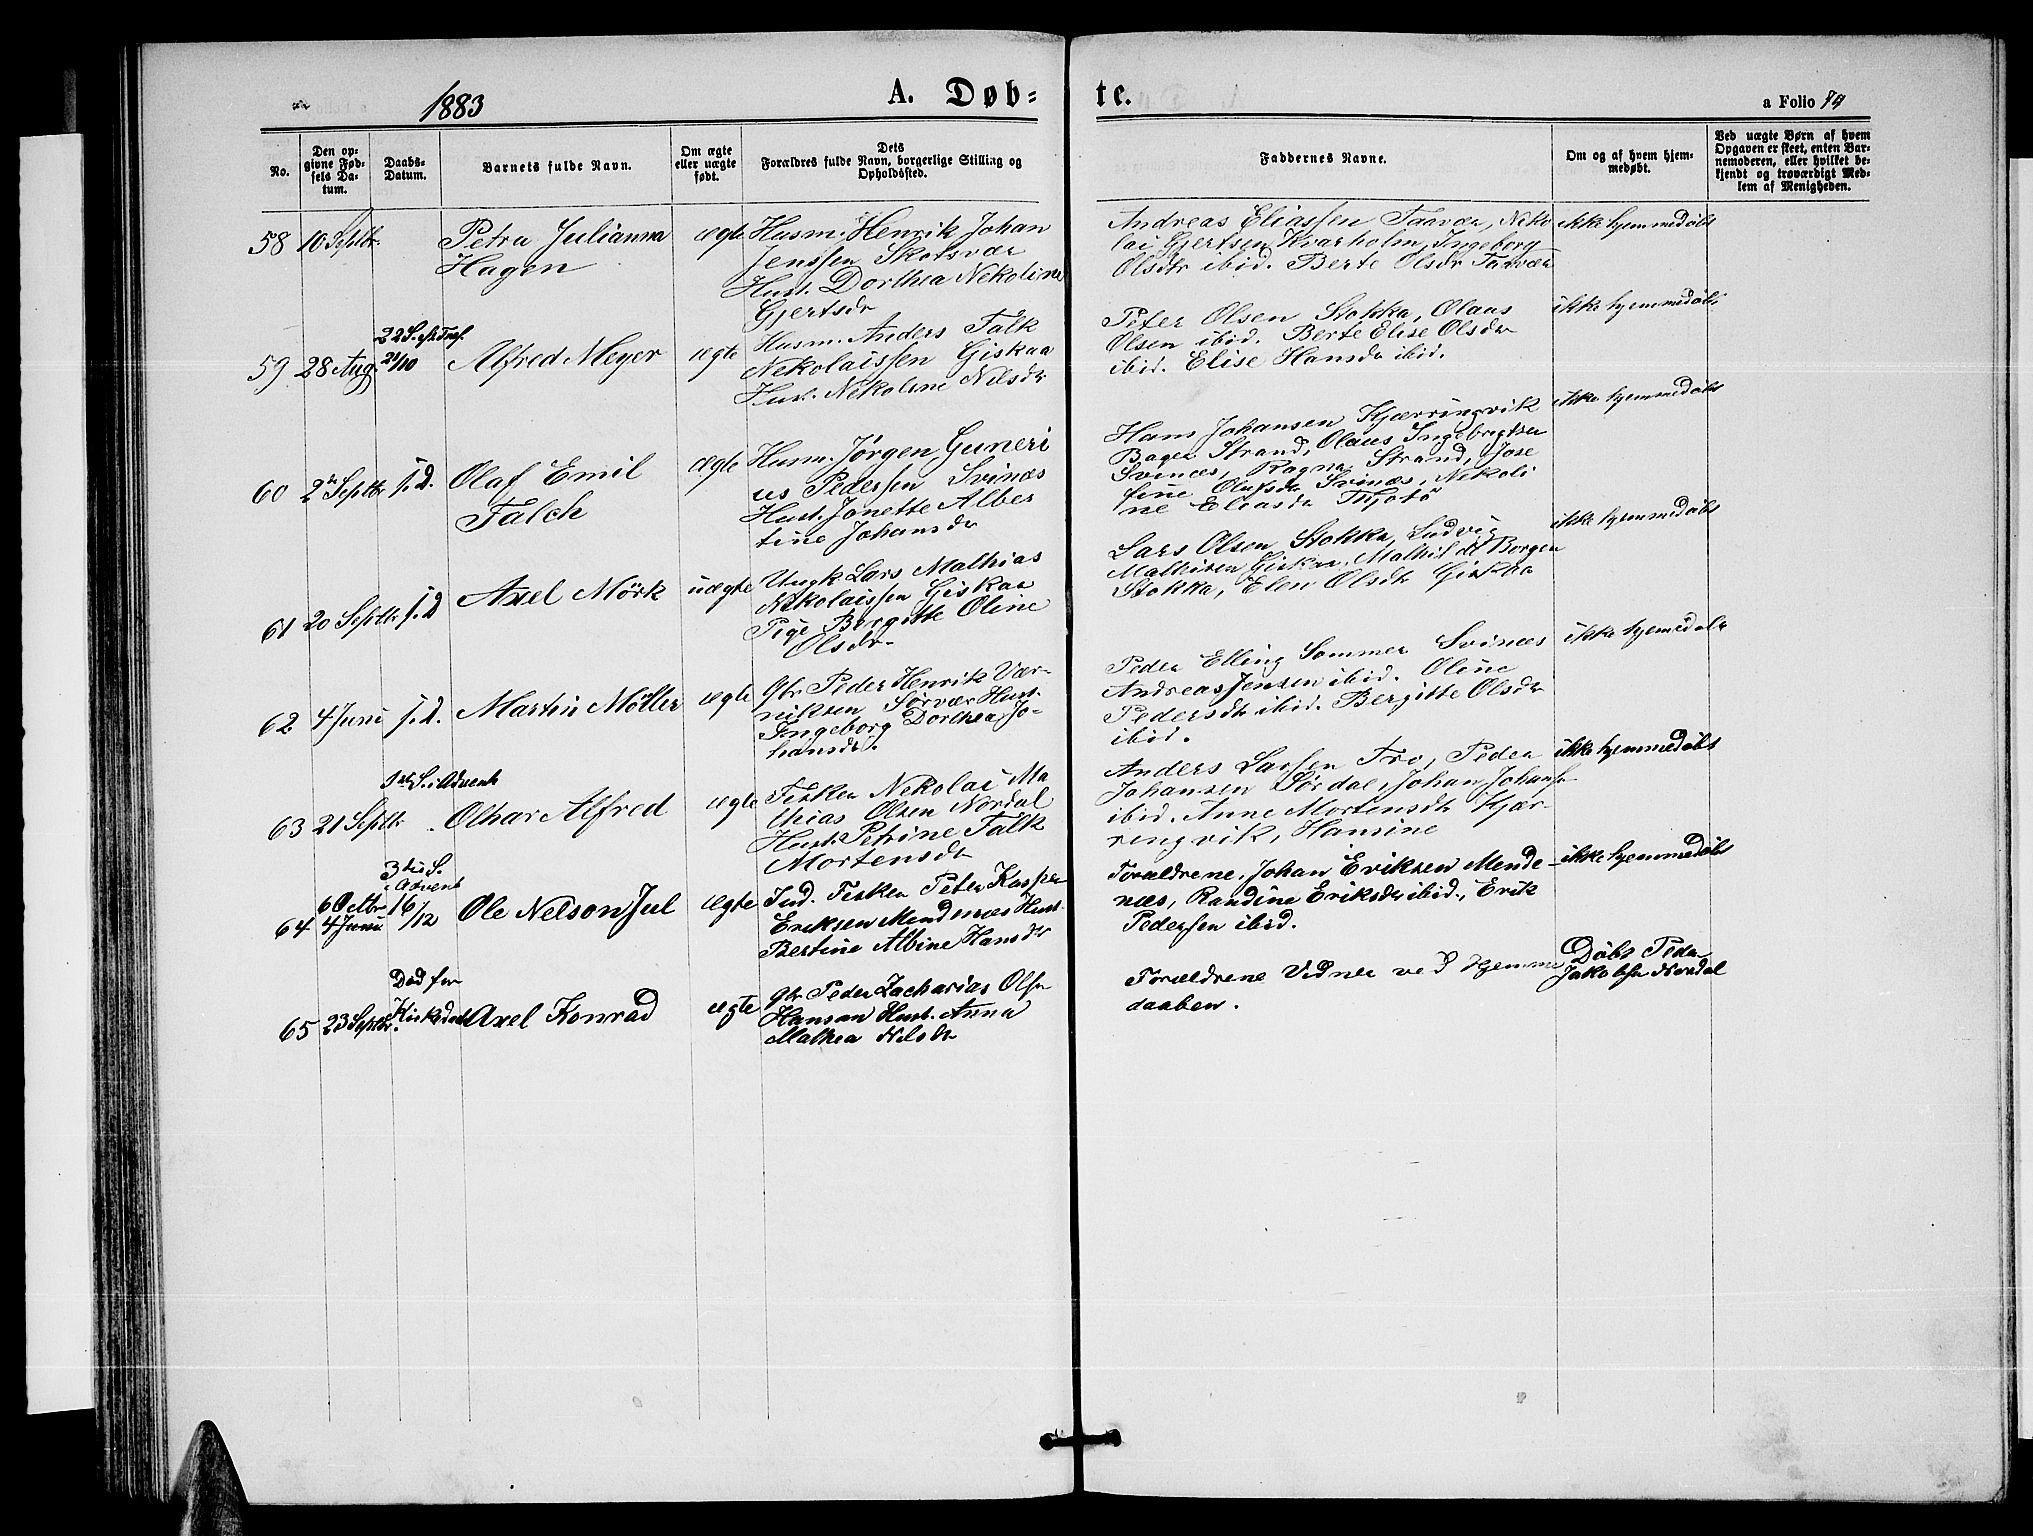 1883
A. Døb=
te.
a Folio
No.
Den op-
givne Fød-
sels Da-
tum.
Daabs-
Datum.
Barnets fulde Navn.
Om ægte
eller uægte
født.
Dets
Forældres fulde Navn, borgerlige Stilling og
Opholdssted.
Faddernes Navne.
Om og af hvem hjem-
medøbt.
Ved uægte Børn af hvem
Opgaven er skeet, enten Bar-
nemoderen, eller hvilket be-
kjendt og troværdigt Med-
lem af Menigheden.
58 10 Septbr.
Petra Julianna
Hagen
ægte
Husm. Henrik Johan
Jenssen Skotsvær
Hust. Dorthea Nekoline
Gjertsdr
Andreas Eliassen Taavær, Neko
lai Gjertsen Kvarholm, Ingeborg
Olsdtr ibid. Berte Olsdr Taavær
ikke hjemmedøbt
59 28 Aug.
22 S. e. Tref.
21/10
Alfred Meyer
ægte
Husm. Anders Falk
Nekolaissen Giskaa
Hust. Nekoline Nilsdr
Peter Olsen Stokka, Olaus
Olsen ibid. Berte Elise Olsdr
ibid. Elise Hansdr ibid.
ikke hjemmedøbt
60 2 Septbr s.d.
Olaf Emil
Falch
ægte
Husm. Jörgen Guneri
us Pedersen Svinæs
Hust. Jonette Alber
tine Johansdr
Hans Johansen Kjærringvik
Bager Strand, Olaus Ingebrigtsen
Svinæs, Ragna Strand, Jose
fine Olufsdr Svinæs, Nekoli
ne Eliasdr Thjotö
ikke hjemmedøbt
61 20 Septbr s.d
Axel Mörk
uægte
Ungk Lars Mathias
Nikolaissen Giskaa
Pige Bergitte Oline
Olsdr.
Lars Olsen Stokka, Ludvig
Mathisen Giskaa, Mathilde Borgen
Stokka, Elen Olsdtr Giskaa
ikke hjemmedøbt
62 4 Juni s.d.
Martin Möller
ægte
Gbr Peder Henrik Vær-
niksen Sörvær Hust.
Ingeborg Dorthea Jo-
hansdr.
Peder Elling Sommer Svinæs
Andreas Jensen ibid. Oline
Pedersdtr ibid. Bergitte Olsdr
ibid.
ikke hjemedøbt
63 21 Septbr
1ste S. i Advent
Othar Alfred
ægte
Fisker Nekolai Ma
thias Olsen Nordal
Hust. Petrine Falk
Mortensdr
Anders Larsen Tro, Peder
Johansen Sördal, Johan Johansen
ibid. Anne Mortensdtr Kjær
ringvik, Hansine
ikke hjemmedøbt
64
6 Octbr
4 Juni
3die S.
i Advent
16/12
Ole Nelson Jul
ægte
Ind. Fisker Peter Kasper
Eriksen Mendenæs Hust.
Bertine Albine Hansdr
Forældrene, Johan Eriksen Mende-
næs, Randine Eriksdr ibid., Erik
Pedersen ibid.
ikke hjemmedøbt
65 23 Septbr.
Død før
Kirkedaab
Axel Konrad
ægte
Gbr Peder Zacharias Olsen
Hansan Hust. Anna
Mathea Nilsdr
Forældrene Vidner ved Hjemme
daaben.
Døbt Peder
Jakobsen Nordal